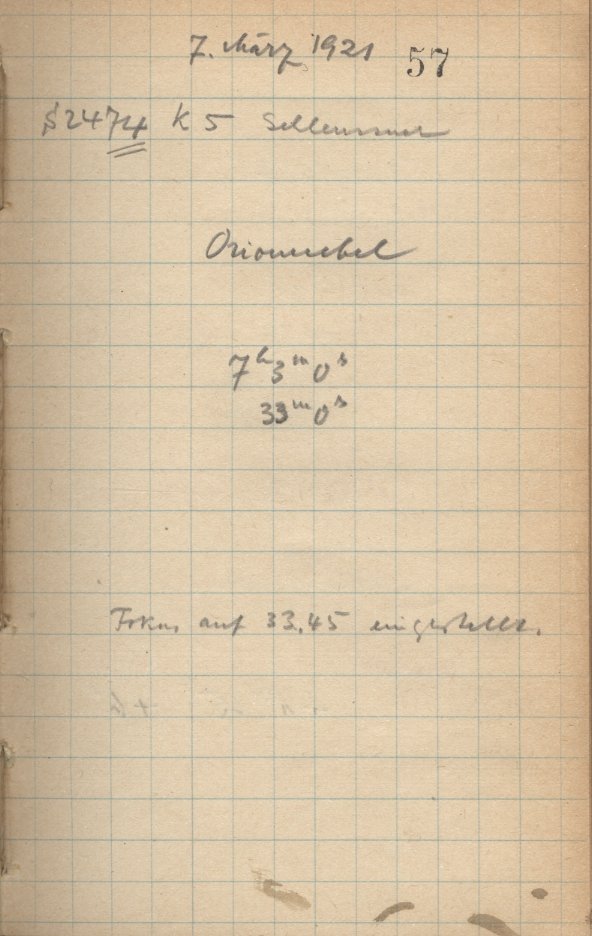 7. März 1921 57
S2474 K 5 Schleussner
Orionnebel
7h3m0s
33m0s
Fokus auf 33,45 eingestellt.